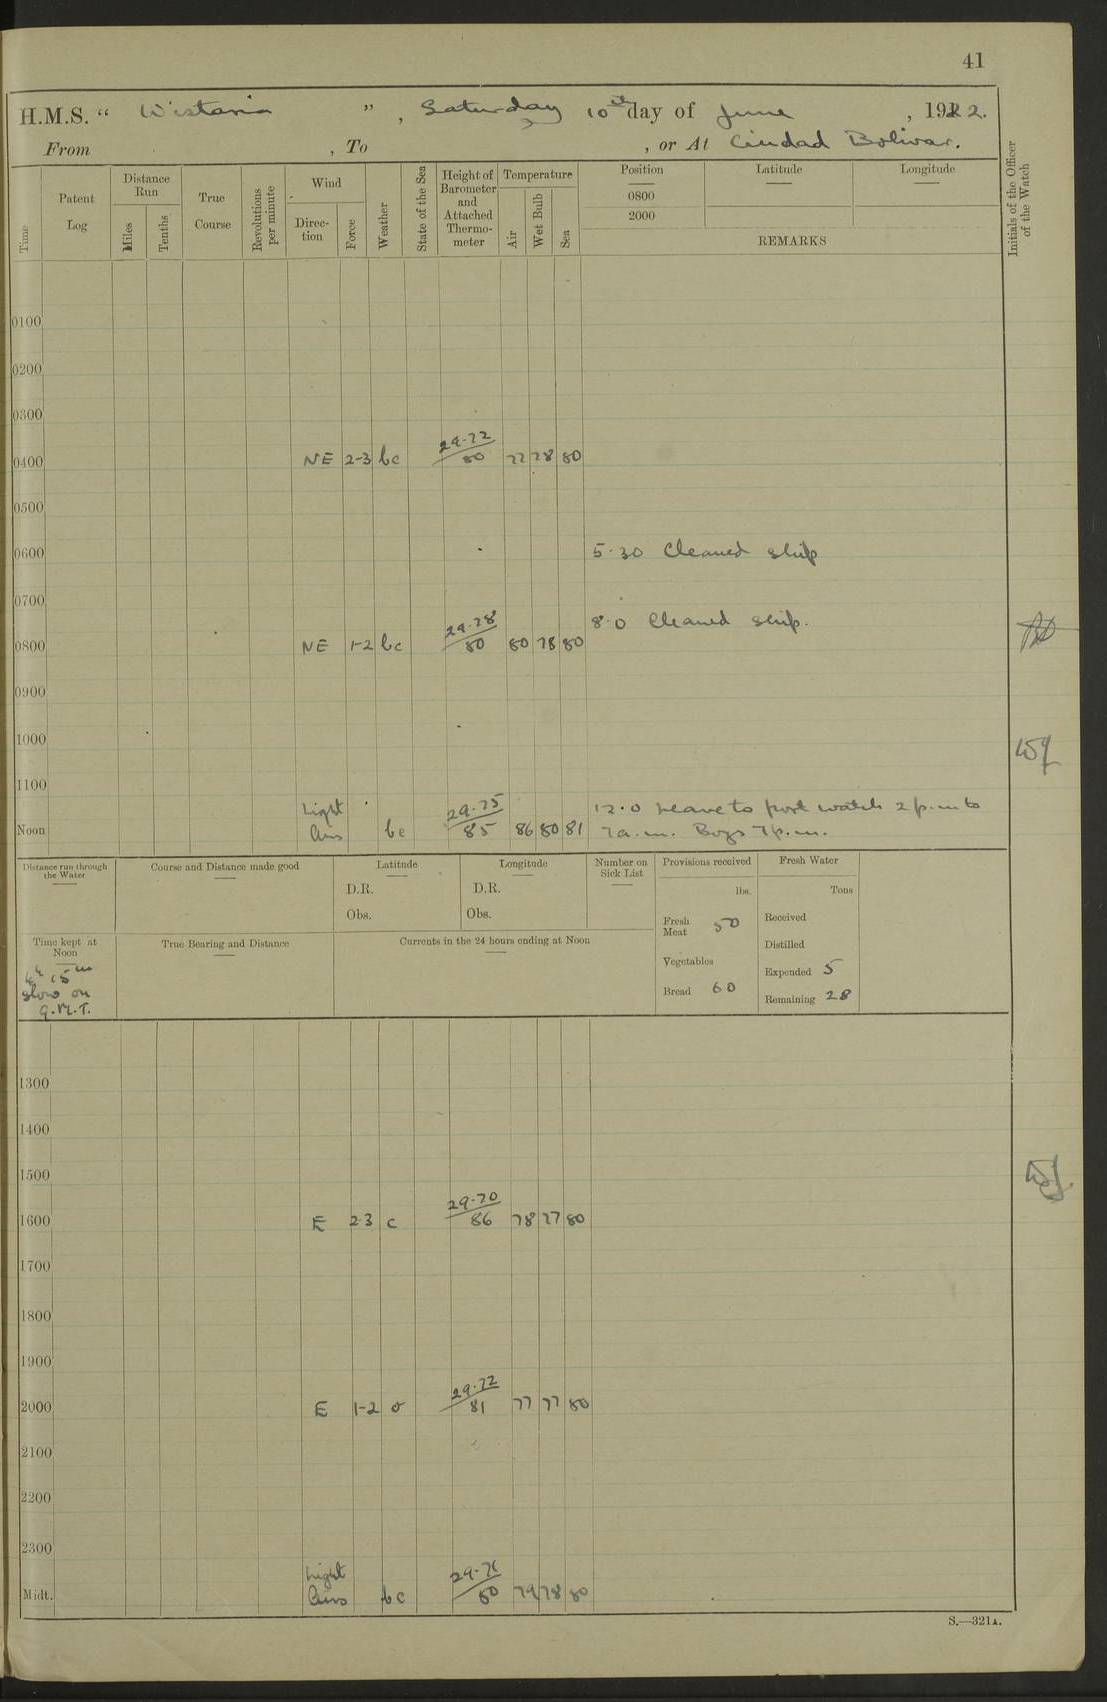 41
H.M.S. “ Wistaria ”, Saturday 10th day of June , 1922.
From , To , or At Ciudad Bolivar.
Time
Patent Log
Distance Run
Miles
Tenths
True Course
Revolutions per minute
Wind
Direction
Force
Weather
State of the Sea
Height of Barometer and Attached Thermometer
Temperature
Air
Wet Bulb
Sea
Position
0800
2000
Latitude
Longitude
REMARKS
Initials of the Officer of the Watch
0100
0200
0300
0400 NE 2-3 bc 29.72 / 80 77 78 80
0500
0600 5.30 Cleaned ship
0700
8.0 Cleaned ship.
0800 NE 1-2 bc 29.78 / 80 80 78 80
0900
1000
1100
Light 29.75 12.0 Leave to port watch 2 p.m. to
Noon Airs bc 85 86 80 81 7 a.m. Boys 7 p.m.
Distance run through the Water
Course and Distance made good
Latitude
D.R.
Obs.
Longitude
D.R.
Obs.
Number on Sick List
Provisions received
lbs.
Fresh Meat 50
Vegetables
Bread 60
Fresh Water
Tons
Received
Distilled
Expended 5
Remaining 28
Time kept at Noon
4h 15m
slow on
G.M.T.
True Bearing and Distance
Currents in the 24 hours ending at Noon
1300
1400
1500
1600 E 2-3 c 29.70 / 86 78 77 80
1700
1800
1900
2000 E 1-2 o 29.72 / 81 77 77 80
2100
2200
2300
Light
Midt. Airs bc 80 79 78 80
S.—321A.